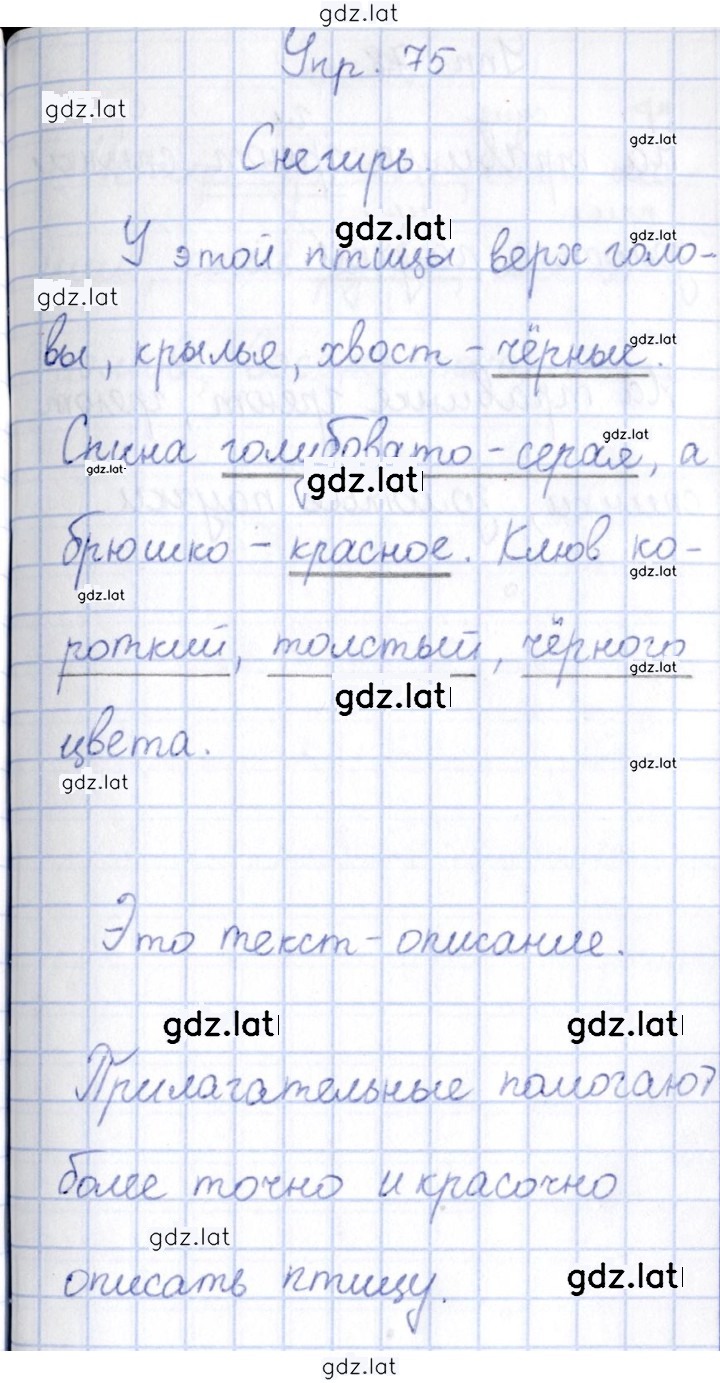 gdz.lat
Упр. 75
gdz.lat
Снегирь.
gdz.lat
gdz.lat
У этой птицы верх голо-
gdz.lat
gdz.lat
вы, крылья, хвост - чёрные.
gdz.lat
Спина голубовато-серая, а
gdz.lat
gdz.lat
gdz.lat
брюшко - красное. Клюв ко-
gdz.lat
gdz.lat
роткий, толстый, чёрного
gdz.lat
gdz.lat
цвета.
gdz.lat
gdz.lat
Это текст-описание.
gdz.lat
gdz.lat
Прилагательные помогают
более точно и красочно
gdz.lat
описать птицу.
gdz.lat
gdz.lat